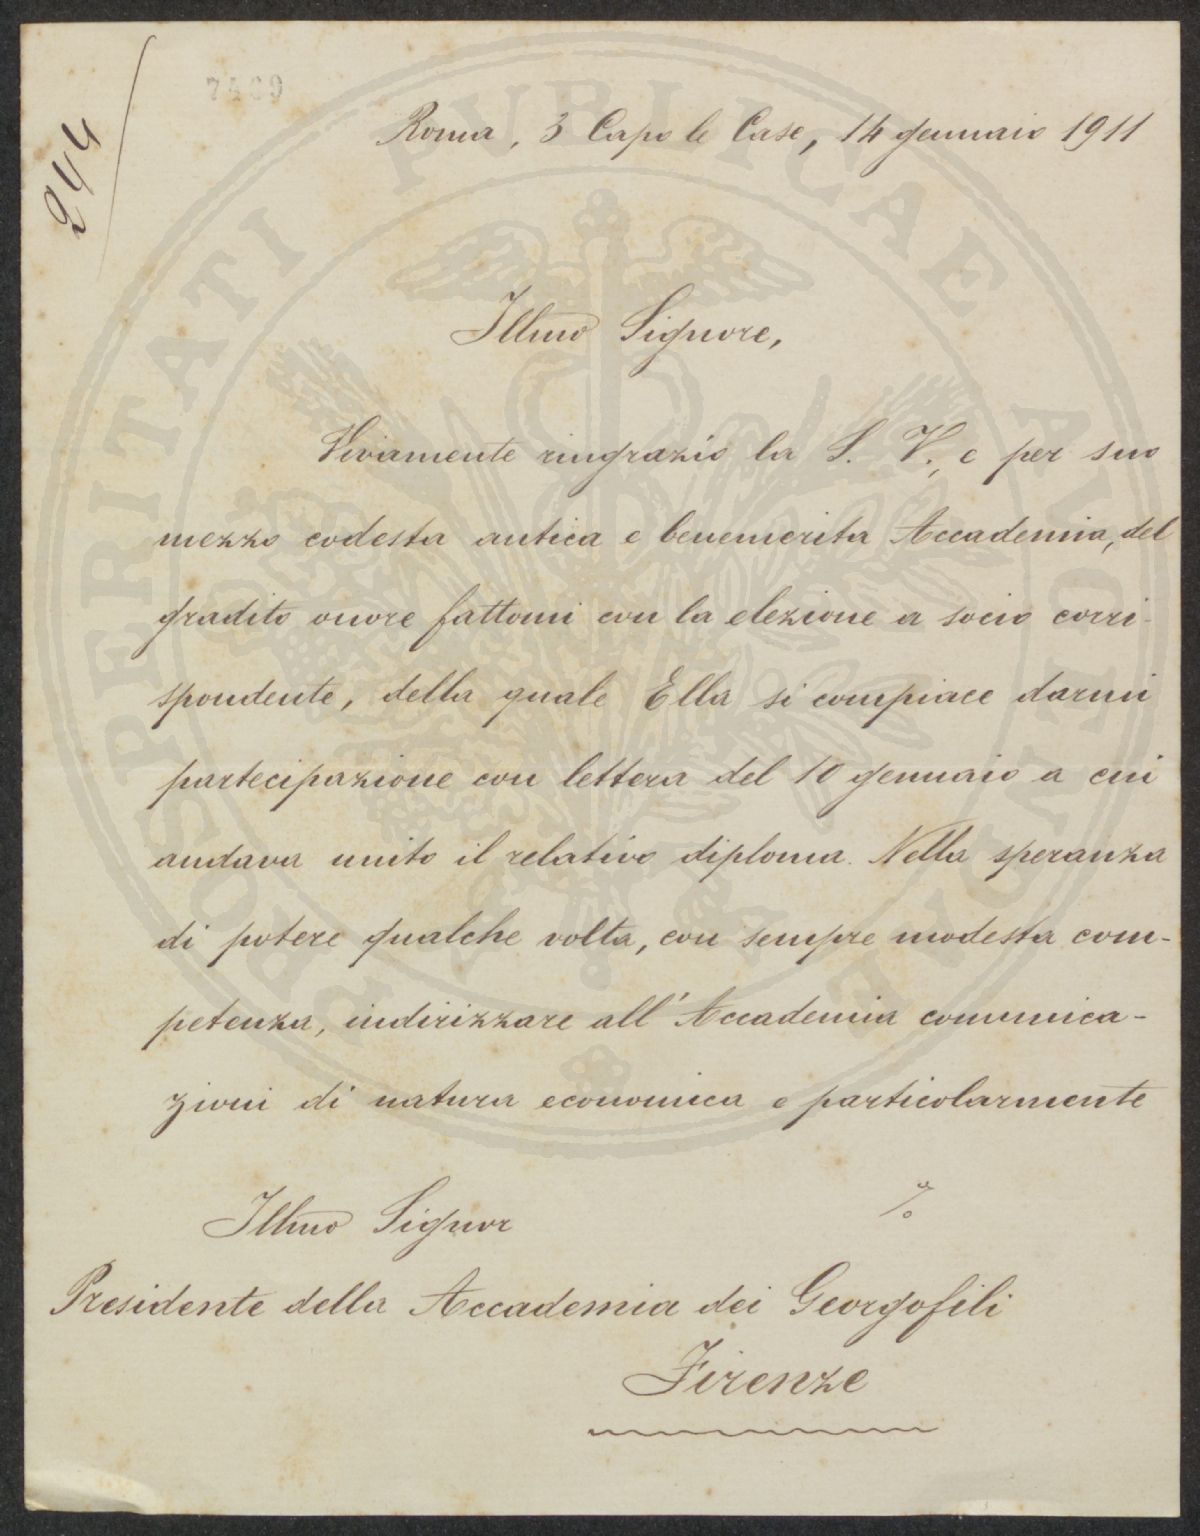 7469
244
Roma, 3 Capo le Case, 14 gennaio 1911
Illmo Signore,
Vivamente ringrazio la S. V., e per suo
mezzo codesta antica e benemerita Accademia, del
gradito onore fattomi con la elezione a socio corri-
spondente, della quale Ella si compiace darmi
partecipazione con lettera del 10 gennaio a cui
andava unito il relativo diploma. Nella speranza
di potere qualche volta, con sempre modesta com-
petenza, indirizzare all'Accademia comunica-
zioni di natura economica e particolarmente
%
Illmo Signor
Presidente della Accademia dei Georgofili
Firenze
PROSPERITATI PUBLICAE AUGENDAE